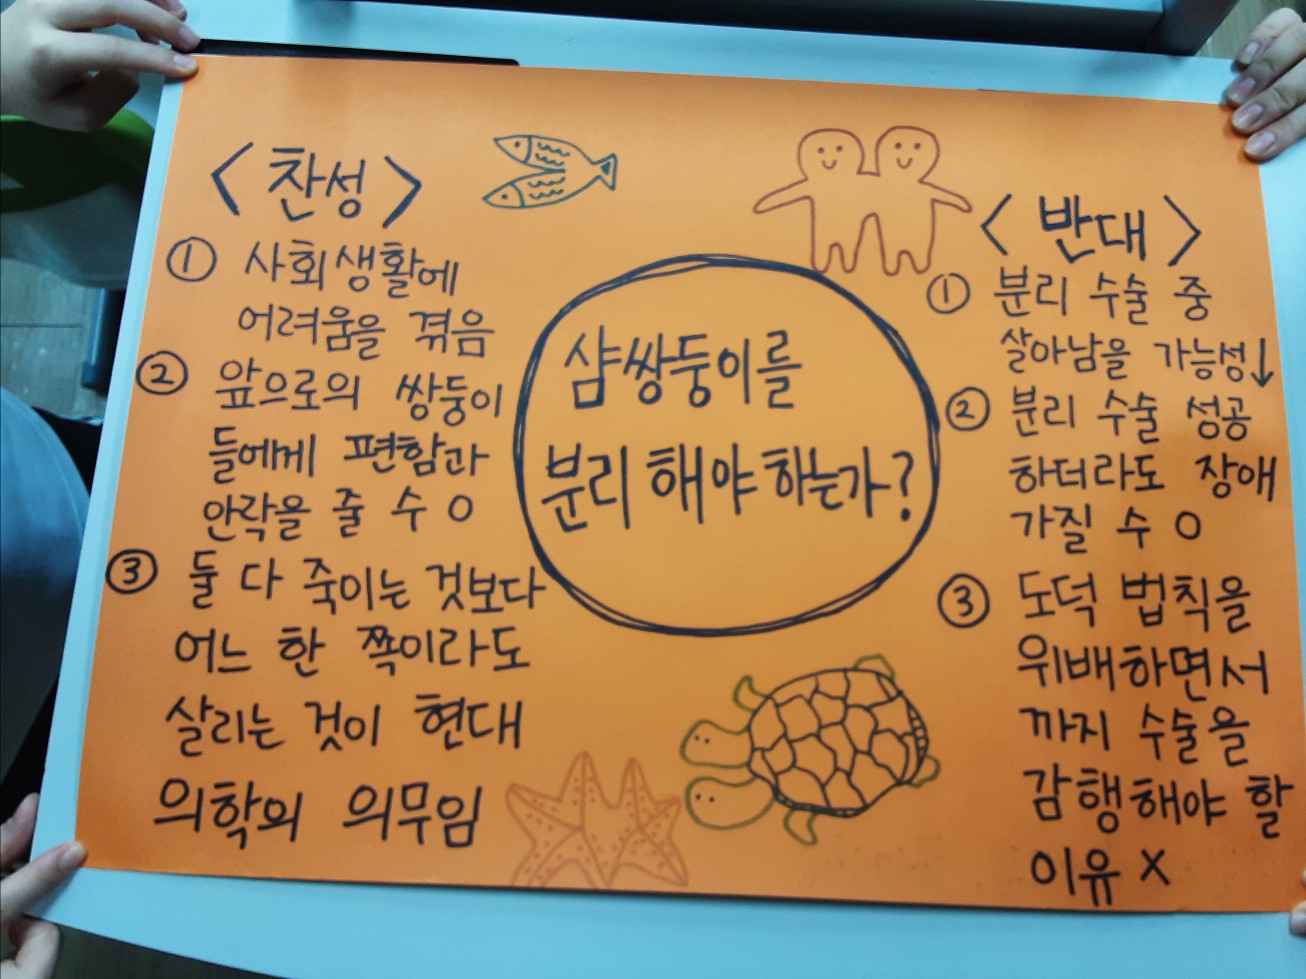 <찬성>
① 사회생활에
어려움을 겪음
② 앞으로의 쌍둥이
들에게 편함과
안락을 줄 수 O
③ 둘 다 죽이는 것보다
어느 한 쪽이라도
살리는 것이 현대
의학의 의무임
샴쌍둥이를
분리해야하는가?
<반대>
① 분리 수술 중
살아남을 가능성↓
② 분리 수술 성공
하더라도 장애
가질 수 O
③ 도덕 법칙을
위배하면서
까지 수술을
감행해야 할
이유 X